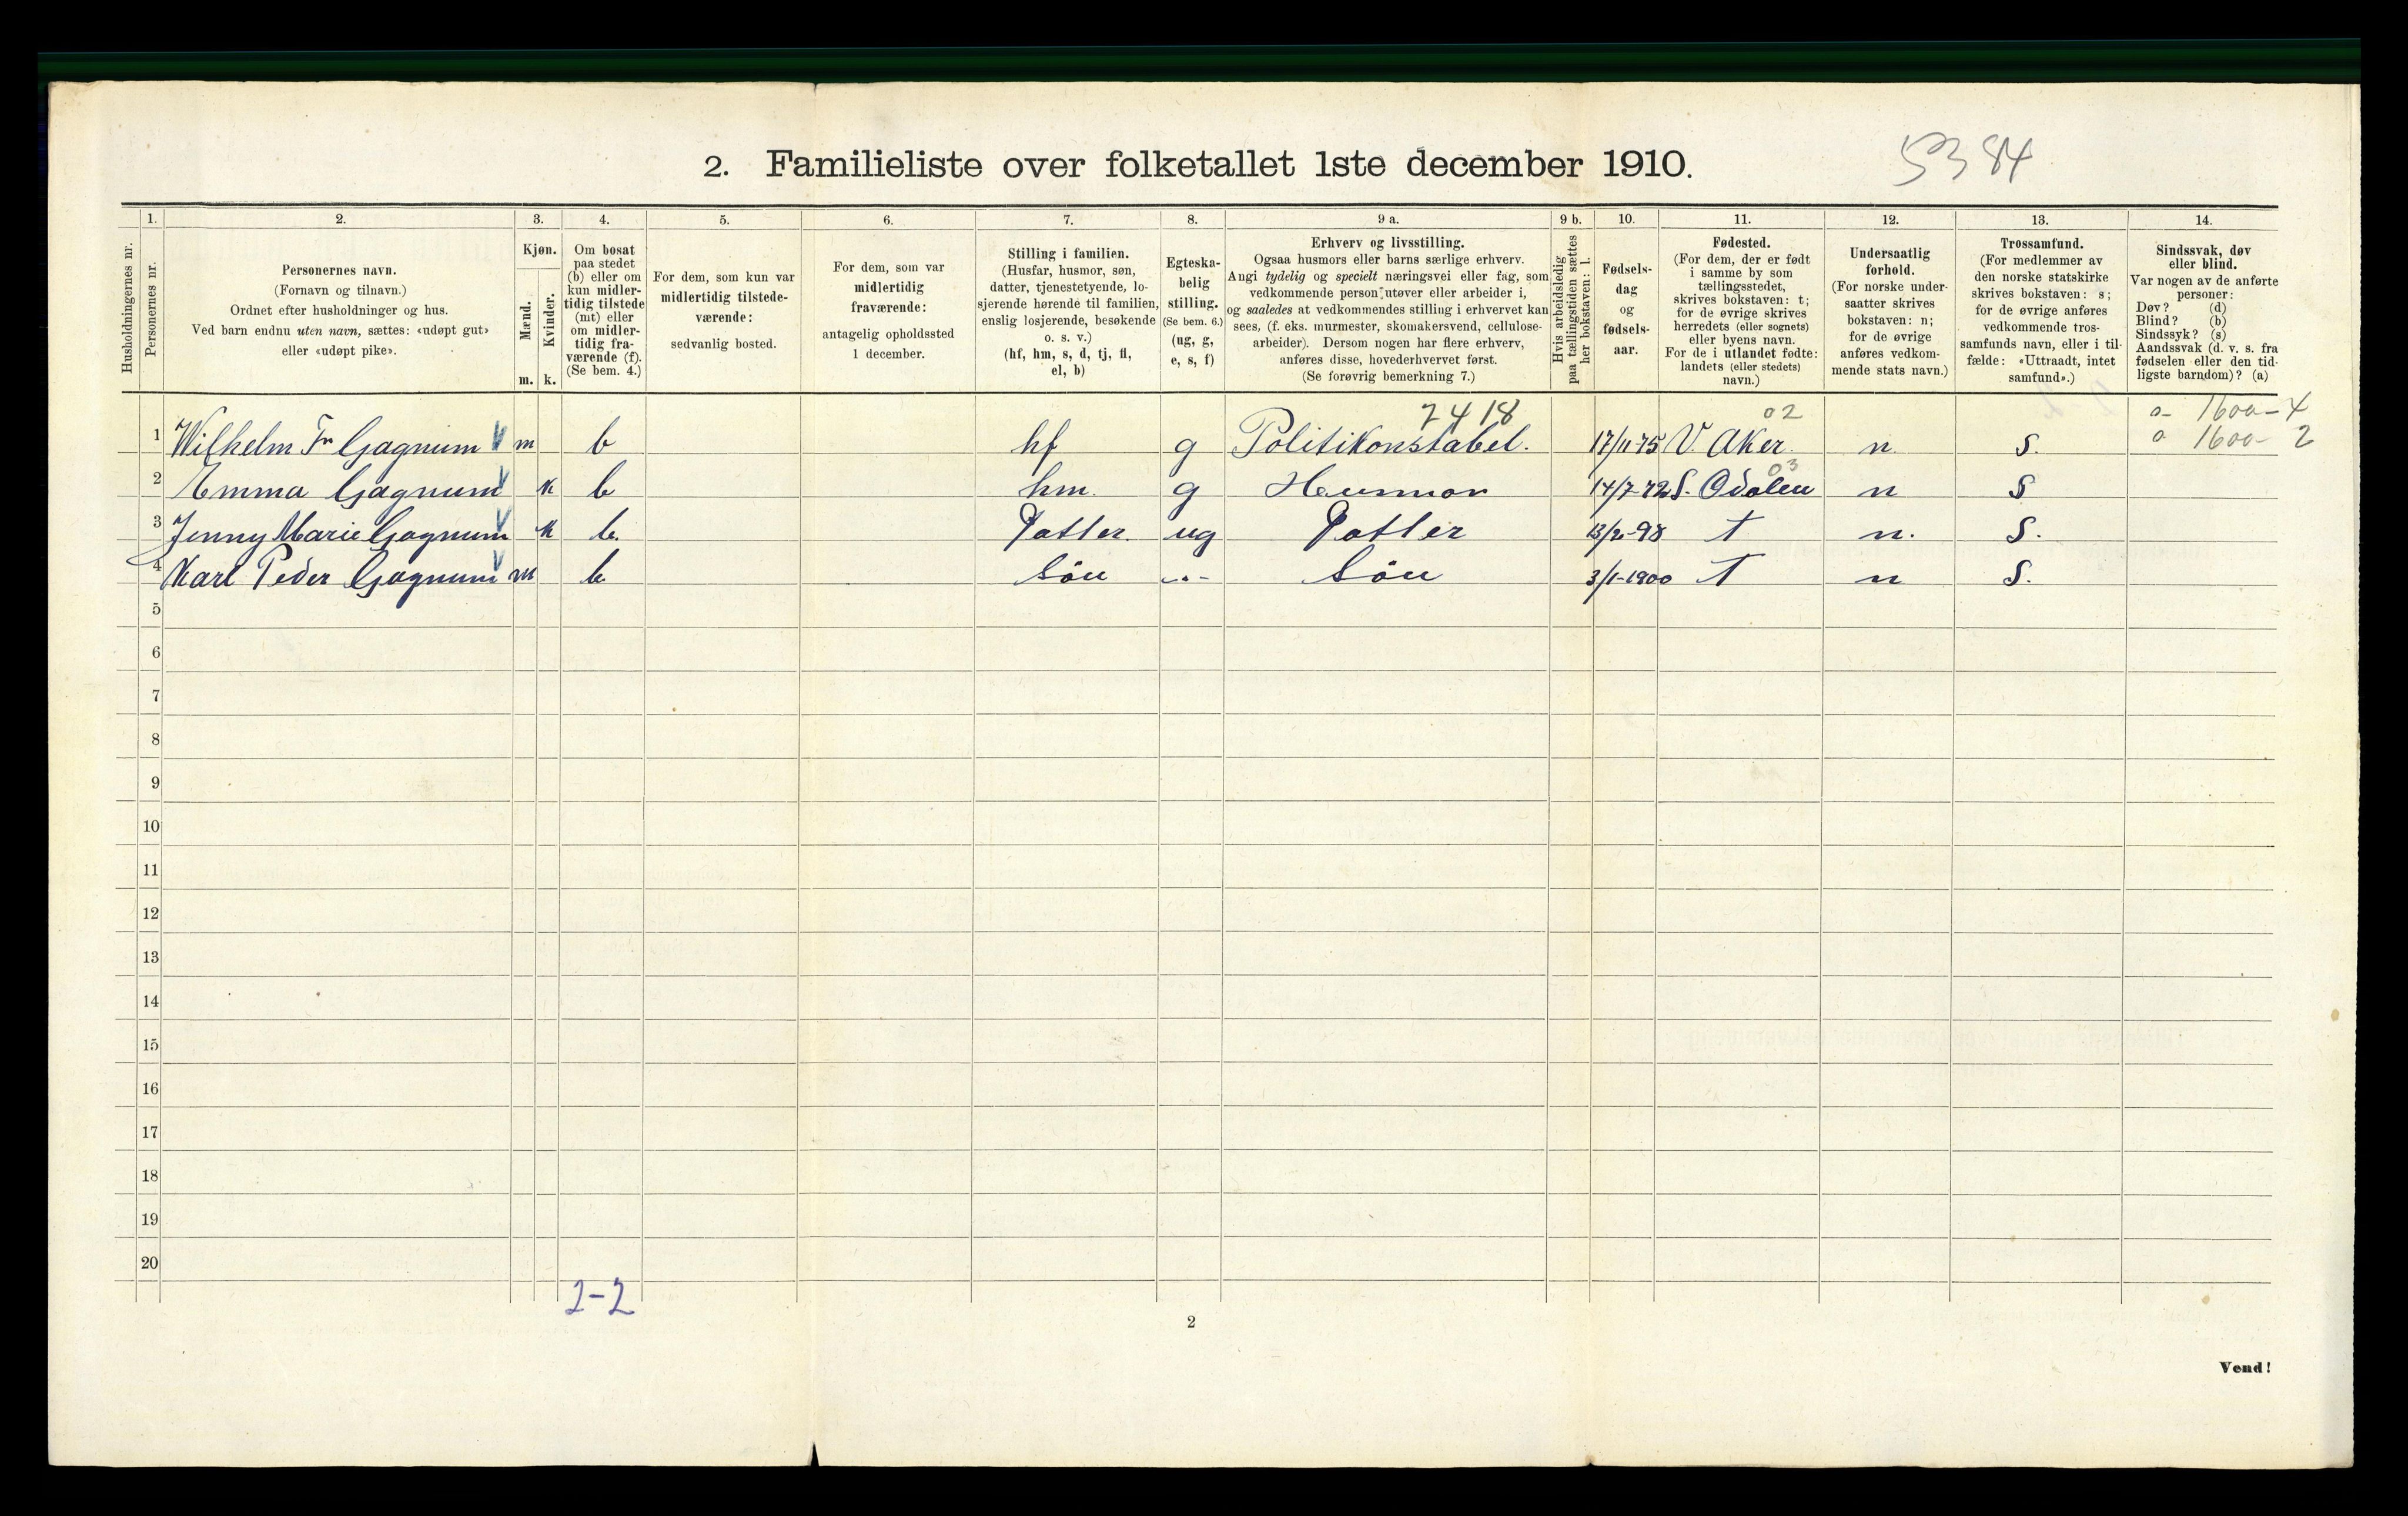 2. Familieliste over folketallet 1ste december 1910.
5384
1. 2. 3. 4. 5. 6. 7. 8. 9 a. 9 b. 10. 11. 12. 13. 14.
Husholdningernes nr.
Personernes nr.
Personernes navn.
(Fornavn og tilnavn.)
Ordnet efter husholdninger og hus.
Ved barn endnu uten navn, sættes: «udøpt gut»
eller «udøpt pike».
Kjøn.
Mænd.
Kvinder.
m. k.
Om bosat
paa stedet
(b) eller om
kun midler-
tidig tilstede
(mt) eller
om midler-
tidig fra-
værende (f).
(Se bem. 4.)
For dem, som kun var
midlertidig tilstede-
værende:
sedvanlig bosted.
For dem, som var
midlertidig
fraværende:
antagelig opholdssted
1 december.
Stilling i familien.
(Husfar, husmor, søn,
datter, tjenestetyende, lo-
sjerende hørende til familien,
enslig losjerende, besøkende
o. s. v.)
(hf, hm, s, d, tj, fl,
el, b)
Egteska-
belig
stilling.
(Se bem. 6.)
(ug, g,
e, s, f)
Erhverv og livsstilling.
Ogsaa husmors eller barns særlige erhverv.
Angi tydelig og specielt næringsvei eller fag, som
vedkommende person utøver eller arbeider i,
og saaledes at vedkommendes stilling i erhvervet kan
sees, (f. eks. murmester, skomakersvend, cellulose-
arbeider). Dersom nogen har flere erhverv,
anføres disse, hovederhvervet først.
(Se forøvrig bemerkning 7.)
Hvis arbeidsledig
paa tællingstiden sættes
her bokstaven: l.
Fødsels-
dag
og
fødsels-
aar.
Fødested.
(For dem, der er født
i samme by som
tællingsstedet,
skrives bokstaven: t;
for de øvrige skrives
herredets (eller sognets)
eller byens navn.
For de i utlandet fødte:
landets (eller stedets)
navn.)
Undersaatlig
forhold.
(For norske under-
saatter skrives
bokstaven: n;
for de øvrige
anføres vedkom-
mende stats navn.)
Trossamfund.
(For medlemmer av
den norske statskirke
skrives bokstaven: s;
for de øvrige anføres
vedkommende tros-
samfunds navn, eller i til-
fælde: «Uttraadt, intet
samfund».)
Sindssvak, døv
eller blind.
Var nogen av de anførte
personer:
Døv? (d)
Blind? (b)
Sindssyk? (s)
Aandssvak (d. v. s. fra
fødselen eller den tid-
ligste barndom)? (a)
7418 02 o- 1600-4
1 Wilhelm Fr Gagnum m b hf g Politikonstabel. 17/11-75 V. Aker. n. S. o 1600- 2
03
2 Emma Gagnum k b hm. g Husmor 14/7-72 S. Odalen n S
3 Jenny Marie Gagnum k b. Datter. ug Datter 13/2-98 t n. S.
4 Karl Peder Gagnum m b Sön -"- Sön 3/1-1900 t n S.
5
6
7
8
9
10
11
12
13
14
15
16
17
18
19
20
2-2
2
Vend!